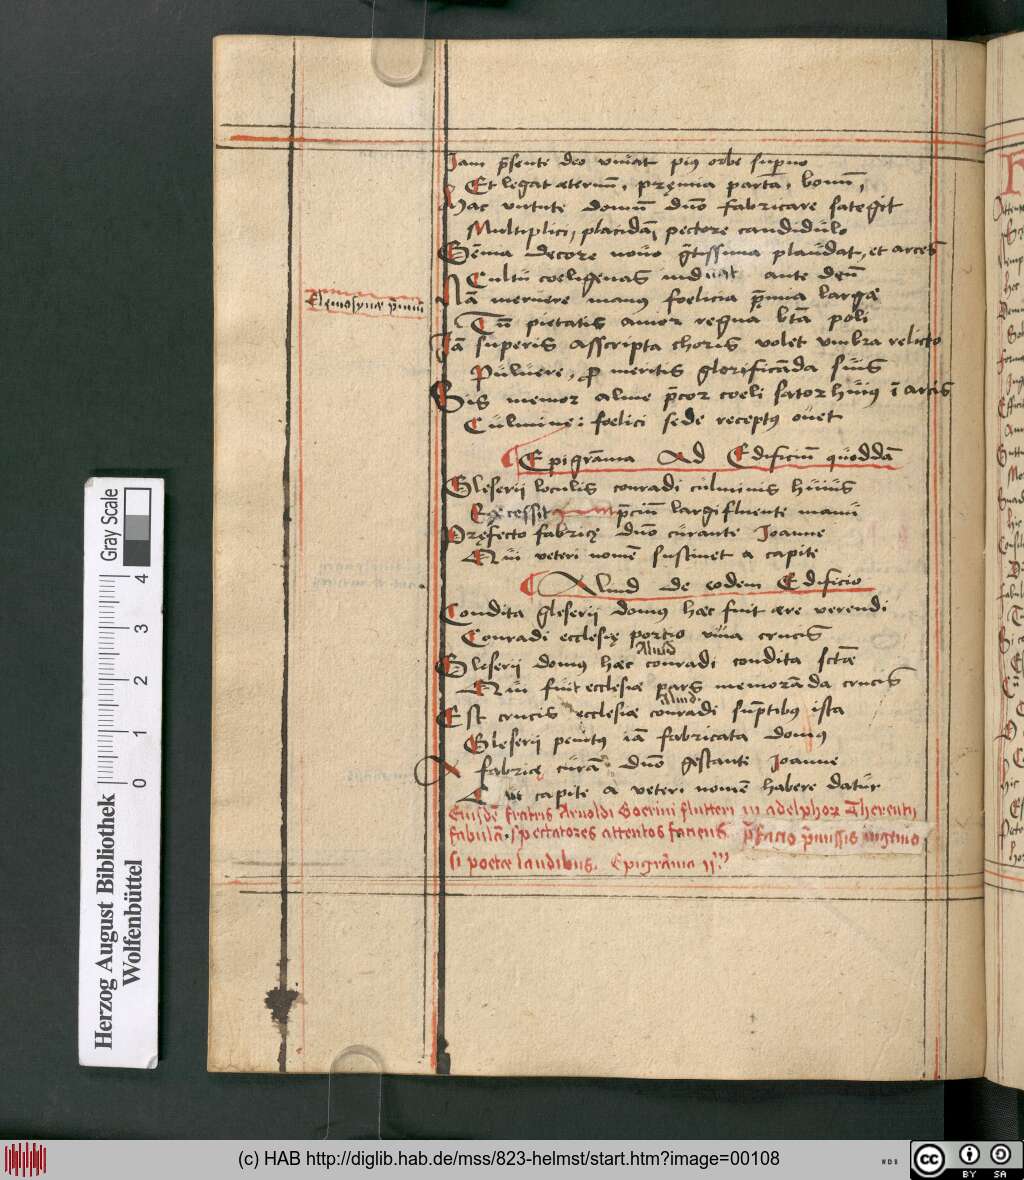 Iam p̄sente deo viuat piꝰ orbe suꝑno
Et legat æternū, pręmia partā, bonū,
Hac virtute domū dn̄o fabricare sategit
Multiplici, placidā, pectore candidulo
decore nouo plaudat, et arces
Cultu coeligenas ante deū
Elęmosynæ p̄miū
Nā meruere manus foelicia p̄mia largæ
Tū pietatis amor regna bt̄a poli
Iā superis asscripta choris volet vmbra relicto
Puluere, ꝓ meritis glorificāda suis
Sis memor alme p̄cor coeli sator huiꝰ ī arcis
Culmine: foelici sede receptꝰ ouet
Epigrāma Ad Edificiū quoddā
Gleserij loculis conradi culminis huius
p̄ciū largifluente manu
Pręfecto fabricę dn̄o curante Ioanne
Qui veteri nomē sustinet a capite
Aliud de eodem Edificio
Condita gleserij domus hæc fuit ære verendi
Conradi ecclesię portio viua crucis
Aliud
Gleserij domus hæc conradi condita sctæ
Qui fuit ecclesiæ pars memorāda crucis
Aliud
Est crucis ecclesiæ conradi sūptibꝰ ista
Gleserij penitꝰ iā fabricata domus
A fabricę curā dn̄o gestante Ioanne
Qui capite a veteri nomē habere datur
Eiusdē fratris Arnoldi Boerini flutteri in adelphoꝝ Therentij
fabulā. spectatores attentos faciens p̄fatio p̄missis ingenio
si poetæ laudibus. Epigrāma ij
Gray Scale
0 1 2 3 4
Herzog August Bibliothek
Wolfenbüttel
(c) HAB http://diglib.hab.de/mss/823-helmst/start.htm?image=00108
WDB
cc BY SA